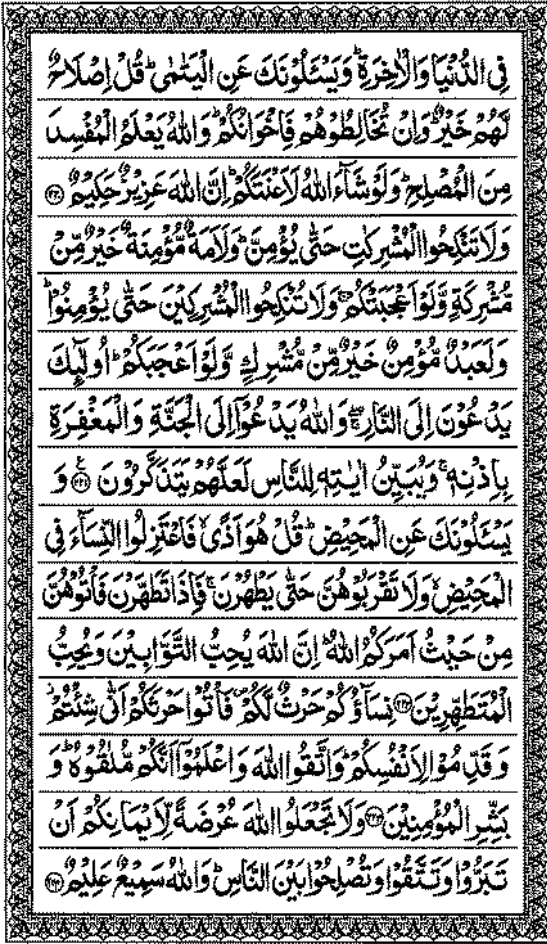 فِى الدُّنۡيَا وَالۡاٰخِرَةِ ؕ وَيَسۡـَٔلُوۡنَكَ عَنِ الۡيَتٰمٰى ؕ قُلۡ اِصۡلَاحٌ
لَّهُمۡ خَيۡرٌ ؕ وَاِنۡ تُخَالِطُوۡهُمۡ فَاِخۡوَانُكُمۡ ؕ وَاللّٰهُ يَعۡلَمُ الۡمُفۡسِدَ
مِنَ الۡمُصۡلِحِ ؕ وَلَوۡ شَآءَ اللّٰهُ لَاَعۡنَتَكُمۡ ؕ اِنَّ اللّٰهَ عَزِيۡزٌ حَكِيۡمٌ ﴿۲۲۰﴾
وَلَا تَنۡكِحُوا الۡمُشۡرِكٰتِ حَتّٰى يُؤۡمِنَّ ؕ وَلَاَمَةٌ مُّؤۡمِنَةٌ خَيۡرٌ مِّنۡ
مُّشۡرِكَةٍ وَّلَوۡ اَعۡجَبَتۡكُمۡ ۚ وَلَا تُنۡكِحُوا الۡمُشۡرِكِيۡنَ حَتّٰى يُؤۡمِنُوۡا ؕ
وَلَعَبۡدٌ مُّؤۡمِنٌ خَيۡرٌ مِّنۡ مُّشۡرِكٍ وَّلَوۡ اَعۡجَبَكُمۡ ؕ اُولٰٓٮِٕكَ
يَدۡعُوۡنَ اِلَى النَّارِ ۖۚ وَاللّٰهُ يَدۡعُوۡٓا اِلَى الۡجَنَّةِ وَالۡمَغۡفِرَةِ
بِاِذۡنِهٖ ۚ وَيُبَيِّنُ اٰيٰتِهٖ لِلنَّاسِ لَعَلَّهُمۡ يَتَذَكَّرُوۡنَ ﴿۲۲۱﴾ وَ
يَسۡـَٔلُوۡنَكَ عَنِ الۡمَحِيۡضِ ؕ قُلۡ هُوَ اَذًى ۙ فَاعۡتَزِلُوا النِّسَآءَ فِى
الۡمَحِيۡضِ ۙ وَلَا تَقۡرَبُوۡهُنَّ حَتّٰى يَطۡهُرۡنَ ۚ فَاِذَا تَطَهَّرۡنَ فَاۡتُوۡهُنَّ
مِنۡ حَيۡثُ اَمَرَكُمُ اللّٰهُ ؕ اِنَّ اللّٰهَ يُحِبُّ التَّوَّابِيۡنَ وَيُحِبُّ
الۡمُتَطَهِّرِيۡنَ ﴿۲۲۲﴾ نِسَآؤُكُمۡ حَرۡثٌ لَّكُمۡ ۪ فَاۡتُوۡا حَرۡثَكُمۡ اَنّٰى شِئۡتُمۡ ۫
وَقَدِّمُوۡا لِاَنۡفُسِكُمۡ ؕ وَاتَّقُوا اللّٰهَ وَاعۡلَمُوۡٓا اَنَّكُمۡ مُّلٰقُوۡهُ ؕ وَ
بَشِّرِ الۡمُؤۡمِنِيۡنَ ﴿۲۲۳﴾ وَلَا تَجۡعَلُوا اللّٰهَ عُرۡضَةً لِّاَيۡمَانِكُمۡ اَنۡ
تَبَرُّوۡا وَتَتَّقُوۡا وَتُصۡلِحُوۡا بَيۡنَ النَّاسِ ؕ وَاللّٰهُ سَمِيۡعٌ عَلِيۡمٌ ﴿۲۲۴﴾